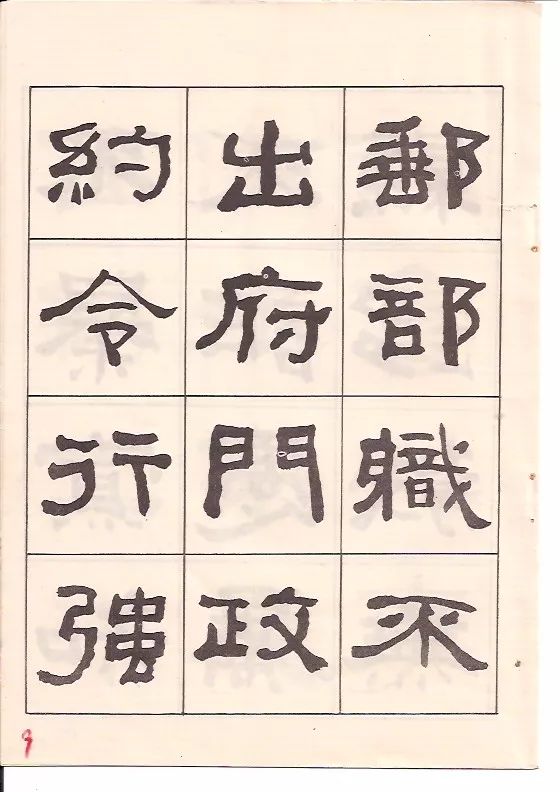 郵部軄不
出府門政
約令行強
9